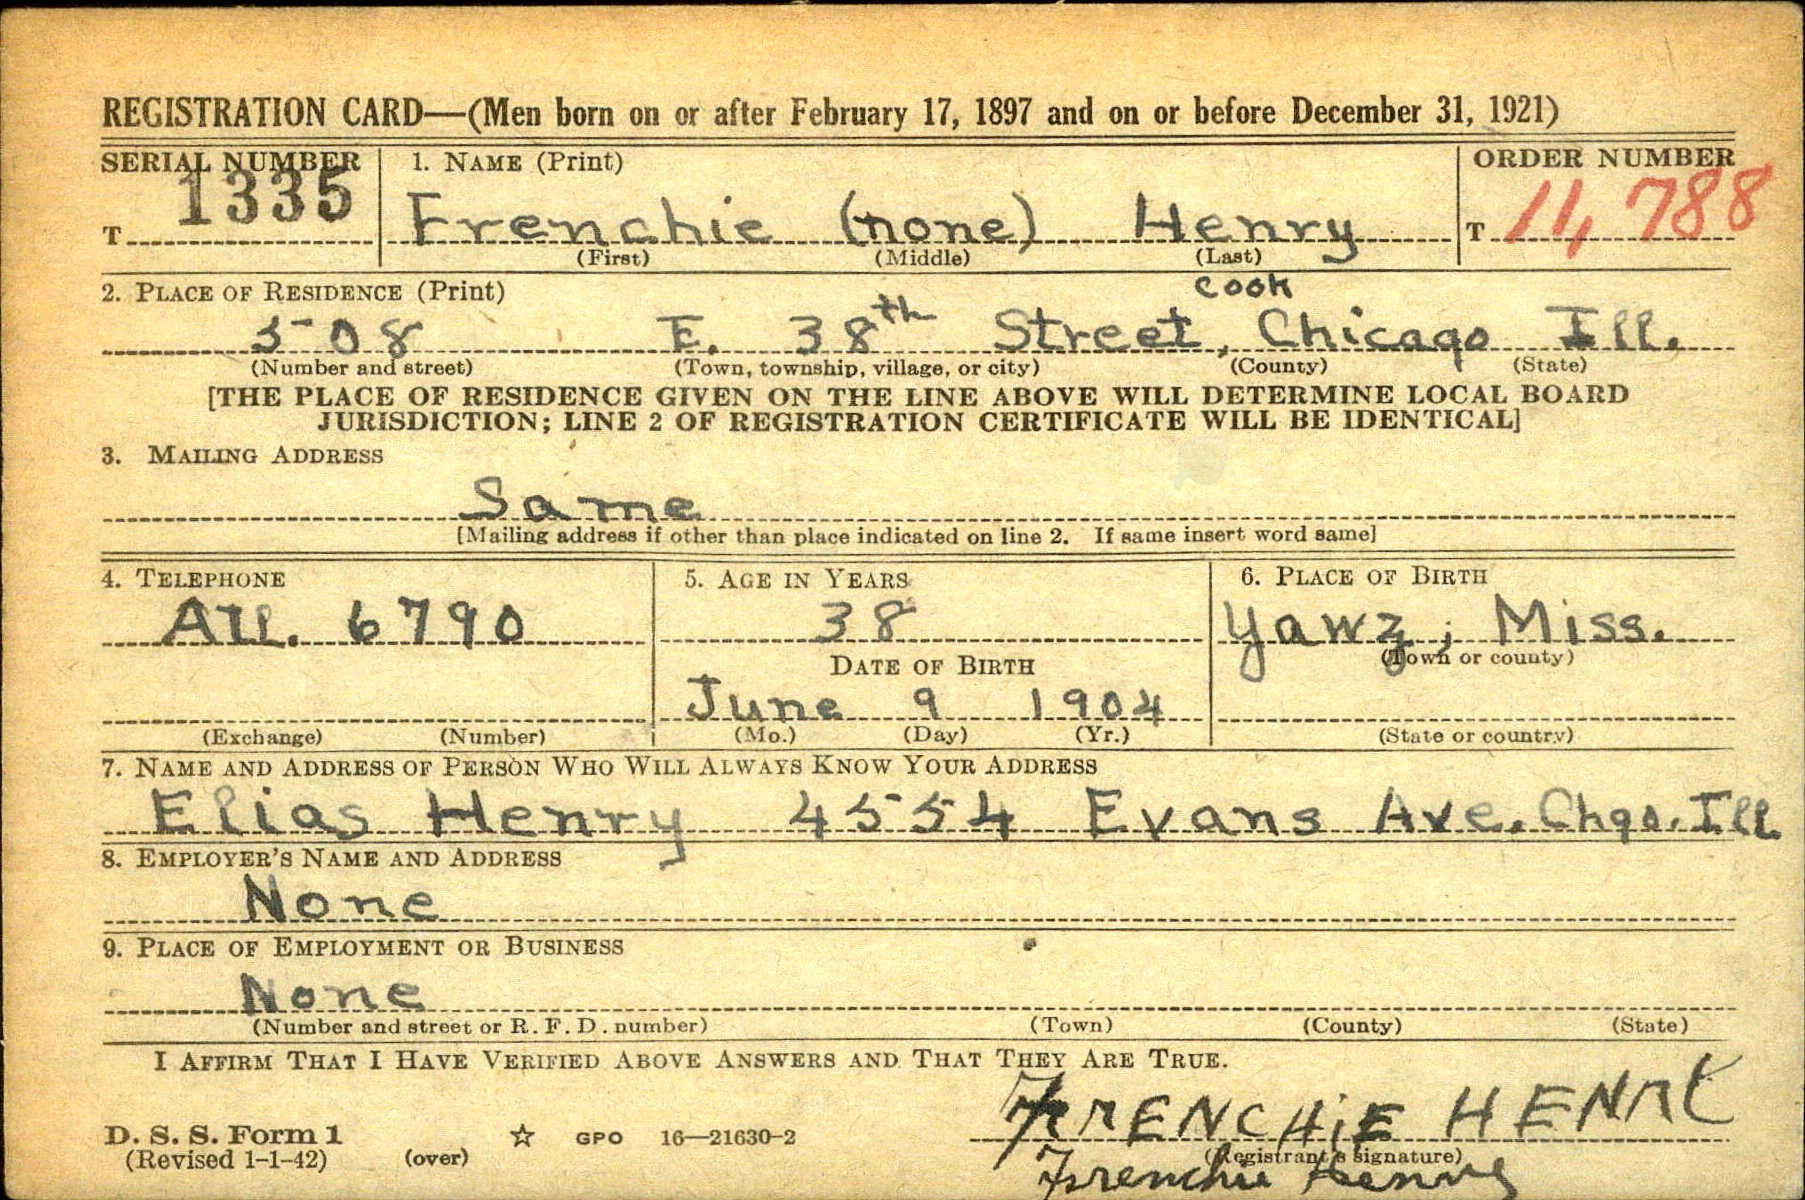 REGISTRATION CARD—(Men born on or after February 17, 1897 and on or before December 31, 1921)
SERIAL NUMBER 1. NAME (Print) ORDER NUMBER
T 1335 Frenchie (none) Henry T 11,788
(First) (Middle) (Last)
2. PLACE OF RESIDENCE (Print) Cook
508 E. 38th Street, Chicago Ill.
(Number and street) (Town, township, village, or city) (County) (State)
[THE PLACE OF RESIDENCE GIVEN ON THE LINE ABOVE WILL DETERMINE LOCAL BOARD
JURISDICTION; LINE 2 OF REGISTRATION CERTIFICATE WILL BE IDENTICAL]
3. MAILING ADDRESS
Same
[Mailing address if other than place indicated on line 2. If same insert word same]
4. TELEPHONE 5. AGE IN YEARS 6. PLACE OF BIRTH
Atl. 6790 38 Yawz, Miss.
(Town or county)
DATE OF BIRTH
June 9 1904
(Exchange) (Number) (Mo.) (Day) (Yr.) (State or country)
7. NAME AND ADDRESS OF PERSON WHO WILL ALWAYS KNOW YOUR ADDRESS
Elias Henry 4554 Evans Ave. Chgo. Ill
8. EMPLOYER'S NAME AND ADDRESS
None
9. PLACE OF EMPLOYMENT OR BUSINESS
None
(Number and street or R. F. D. number) (Town) (County) (State)
I AFFIRM THAT I HAVE VERIFIED ABOVE ANSWERS AND THAT THEY ARE TRUE.
FRENCHiE HENRY
D. S. S. Form 1 GPO 16—21630-2
(Revised 1-1-42) (over) (Registrant's signature)
Frenchie Henry